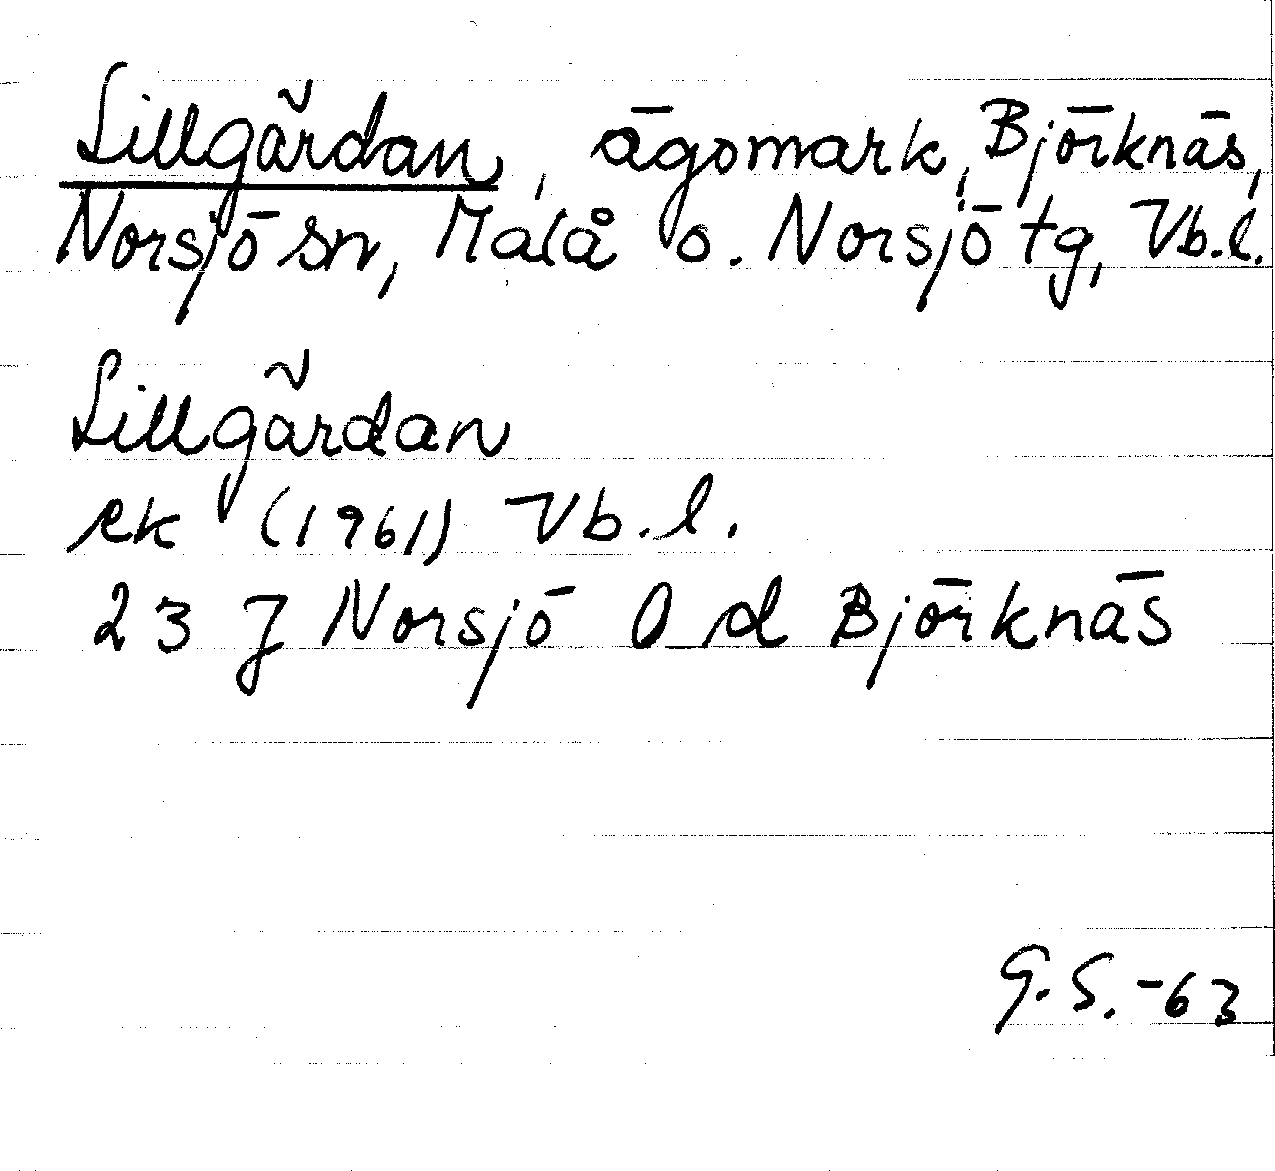 Lillgårdan, ägomark, Björknäs,
Norsjö sn, Malå o. Norsjö tg, Vb.l.
Lillgårdan
ek (1961) Vb.l.
23 J Norsjö 0 d Björknäs
G.S.-63